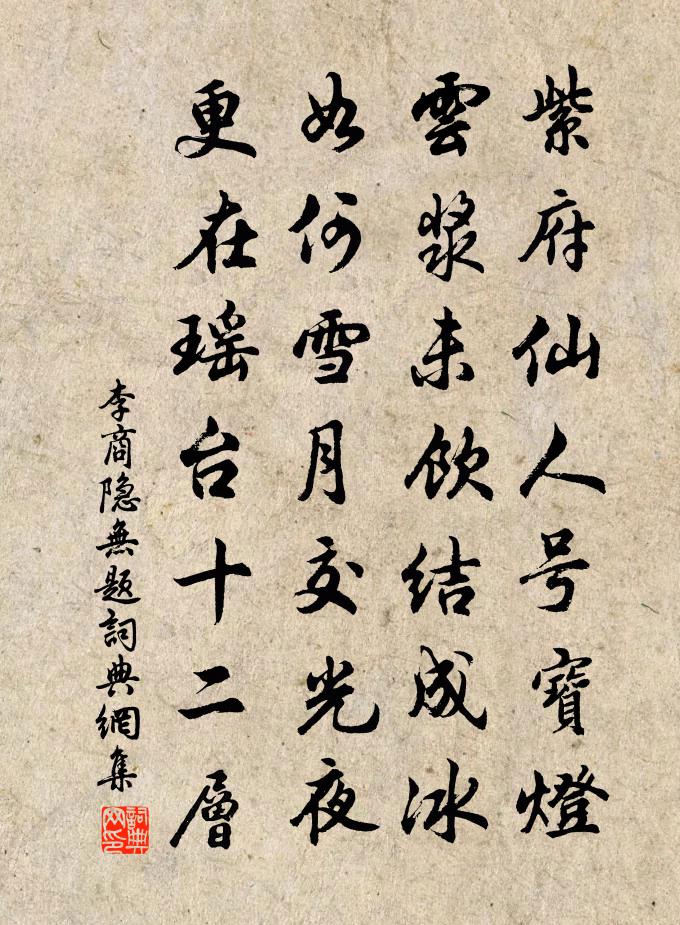 紫府仙人号寶燈
雲漿未飲結成冰
如何雪月交光夜
更在瑶台十二層
李商隐無题詞典網集
詞典
网印